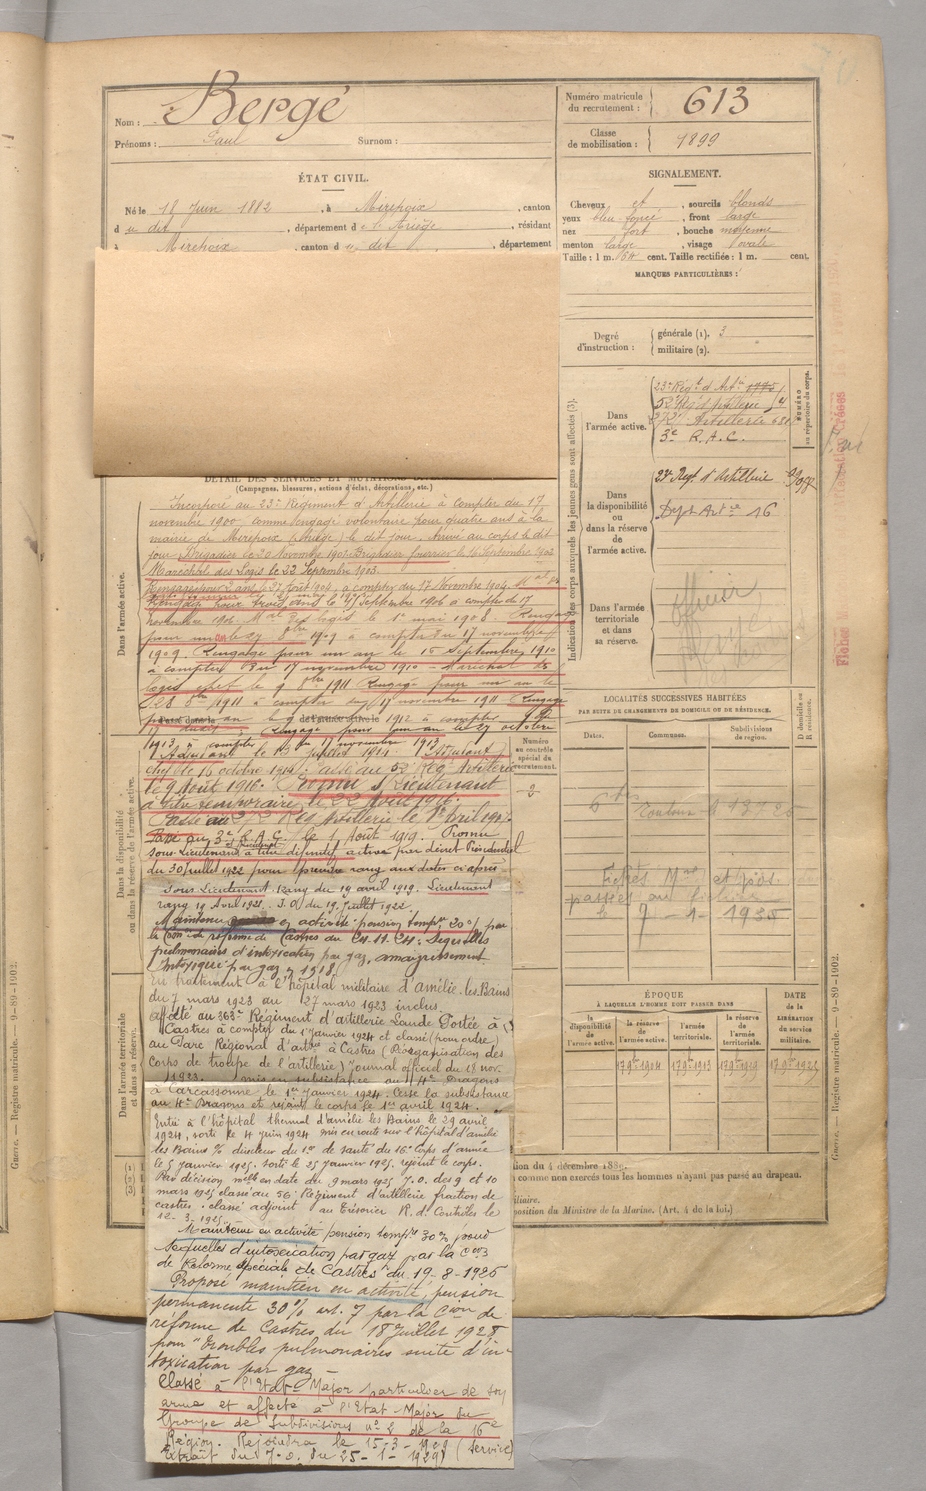 Nom : Bergé
Prénoms : Paul Surnom :
Numéro matricule du recrutement : 613
Classe de mobilisation : 1899
ÉTAT CIVIL.
Né le 18 Juin 1882, à Mirepoix, canton
du dit, département de l'Ariège, résidant
à Mirepoix, canton du dit, département
SIGNALEMENT.
Cheveux et, sourcils blonds
yeux bleu foncé, front large
nez fort, bouche moyenne
menton large, visage ovale
Taille : 1 m. 64 cent. Taille rectifiée : 1 m. cent.
MARQUES PARTICULIÈRES :
Degré d'instruction : générale (1). 3
militaire (2).
DÉTAIL DES SERVICES ET MUTATIONS
(Campagnes, blessures, actions d'éclat, décorations, etc.)
Dans l'armée active.
Incorporé au 23e Régiment d'Artillerie à compter du 17
novembre 1900 comme engagé volontaire pour quatre ans à la
mairie de Mirepoix (Ariège) le dit jour. Arrivé au corps le dit
jour. Brigadier le 20 Novembre 1901. Brigadier fourrier le 16 Septembre 1902
Maréchal des Logis le 22 Septembre 1903.
Rengagé pour 2 ans le 27 Août 1904, à compter du 17 Novembre 1904.
Rengagé pour trois ans le Septembre 1906 à compter du 17
novembre 1906. Mal des logis le 1er mai 1908. Rengagé
pour un an le 27 8bre 1909 à compter du 17 novembre
1909. Rengagé pour un an le 16 Septembre 1910
à compter du 17 novembre 1910 – Maréchal des
logis chef le 9 8bre 1911 Rengagé pour un an le
28 8bre 1911 à compter du 17 novembre 1911 Rengagé
pour un an le 9 1912 à compter
Rengagé pour un an le 27 octobre
1913 à compter du 17 novembre 1913
Adjudant le 13 juillet 1914. Adjudant
chef le 16 octobre 1914 : passé au 52 Reg Artillerie
le 9 Août 1916. Promu s/Lieutenant
à titre temporaire le 22 Août 1916.
Passé au 272 Reg Artillerie le 1er Avril
Passé au 3e R.A.C. le 1 Août 1919. Promu
sous-Lieutenant à titre définitif active par décret Présidentiel
du 30 Juillet 1922 pour prendre rang aux dates ci-après
Sous-Lieutenant. Rang du 19 avril 1919. Lieutenant
rang 19 Avril 1921. J.O. du 19 Juillet 1922.
Maintenu en activité pension tempre 30% par
la Comon de réforme de Castres du 24.11.24 : Séquelles
pulmonaires d'intoxication par gaz, amaigrissement
Intoxiqué par gaz en 1918.
En traitement à l'hôpital militaire d'Amélie-les-Bains
du 7 mars 1923 au 27 mars 1923 inclus.
affecté au 363e Régiment d'artillerie Lourde Portée à
Castres à compter du 1er janvier 1924 et classé (pour ordre)
au Parc Régional d'artie à Castres (Réorganisation des
corps de troupe de l'artillerie) journal officiel du 18 nov.
1923. mis en subsistance au 4e Dragons
à Carcassonne le 1er janvier 1924. Cesse la subsistance
au 4e Dragons et rejoint le corps le 1er avril 1924.
Entré à l'hôpital thermal d'Amélie les Bains le 29 avril
1924, sorti le 4 juin 1924 mis en route sur l'hôpital d'Amélie
les Bains o/ directeur du 1er de santé du 16e Corps d'armée
le 5 Janvier 1925. sorti le 25 Janvier 1925, rejoint le corps.
Par décision melle en date du 9 mars 1925 J.O. des 9 et 10
mars 1925 classé au 56e Régiment d'artillerie fraction de
castres. classé adjoint au Trésorier R. d. Contrôles le
12-3-1925.
Maintenu en activité pension tempre 30% pour
séquelles d'intoxication par gaz par la Con
de Réforme spéciale de Castres du 19-8-1926
Proposé maintien en activité, pension
permanente 30% art. 7 par la Cion de
réforme de Castres du 18 Juillet 1928
pour "troubles pulmonaires suite d'in-
toxication par gaz —
Classé à l'Etat-Major particulier de son
arme et affecté à l'Etat-Major du
Groupe de Subdivisions n° 2 de la 16e
Région. Rejoindra le 15-3-1929 (Service)
Extrait du J.O. du 25-1-1929)
Dans la disponibilité ou dans la réserve de l'armée active.
Dans l'armée territoriale et dans sa réserve.
Numéro au contrôle spécial du recrutement.
Indication des corps auxquels les jeunes gens sont affectés (3).
Dans l'armée active.
23e Régt d'Arte 1775
52e Reg d'artillerie
272e Artillerie
3e R.A.C.
NUMÉRO au répertoire du corps.
Dans la disponibilité ou dans la réserve de l'armée active.
23e Regt d'Artillerie
Dépt Artie 16
Dans l'armée territoriale et dans sa réserve.
officier
LOCALITÉS SUCCESSIVES HABITÉES
PAR SUITE DE CHANGEMENTS DE DOMICILE OU DE RÉSIDENCE.
Dates. Communes. Subdivisions de région. D domicile ou R résidence.
Fiches Mle et pos.
passées au fichier
le 7-1-1935
ÉPOQUE
À LAQUELLE L'HOMME DOIT PASSER DANS
DATE de la LIBÉRATION du service militaire.
la disponibilité de l'armée active.
la réserve de l'armée active.
l'armée territoriale.
la réserve de l'armée territoriale.
17 9bre 1904
ion du 4 décembre 1889.
comme non exercés tous les hommes n'ayant pas passé au drapeau.
iliaire.
position du Ministre de la Marine. (Art. 4 de la loi.)
Guerre. — Registre matricule. — 9-89-1902.
Guerre. — Registre matricule. — 9-89-1902.